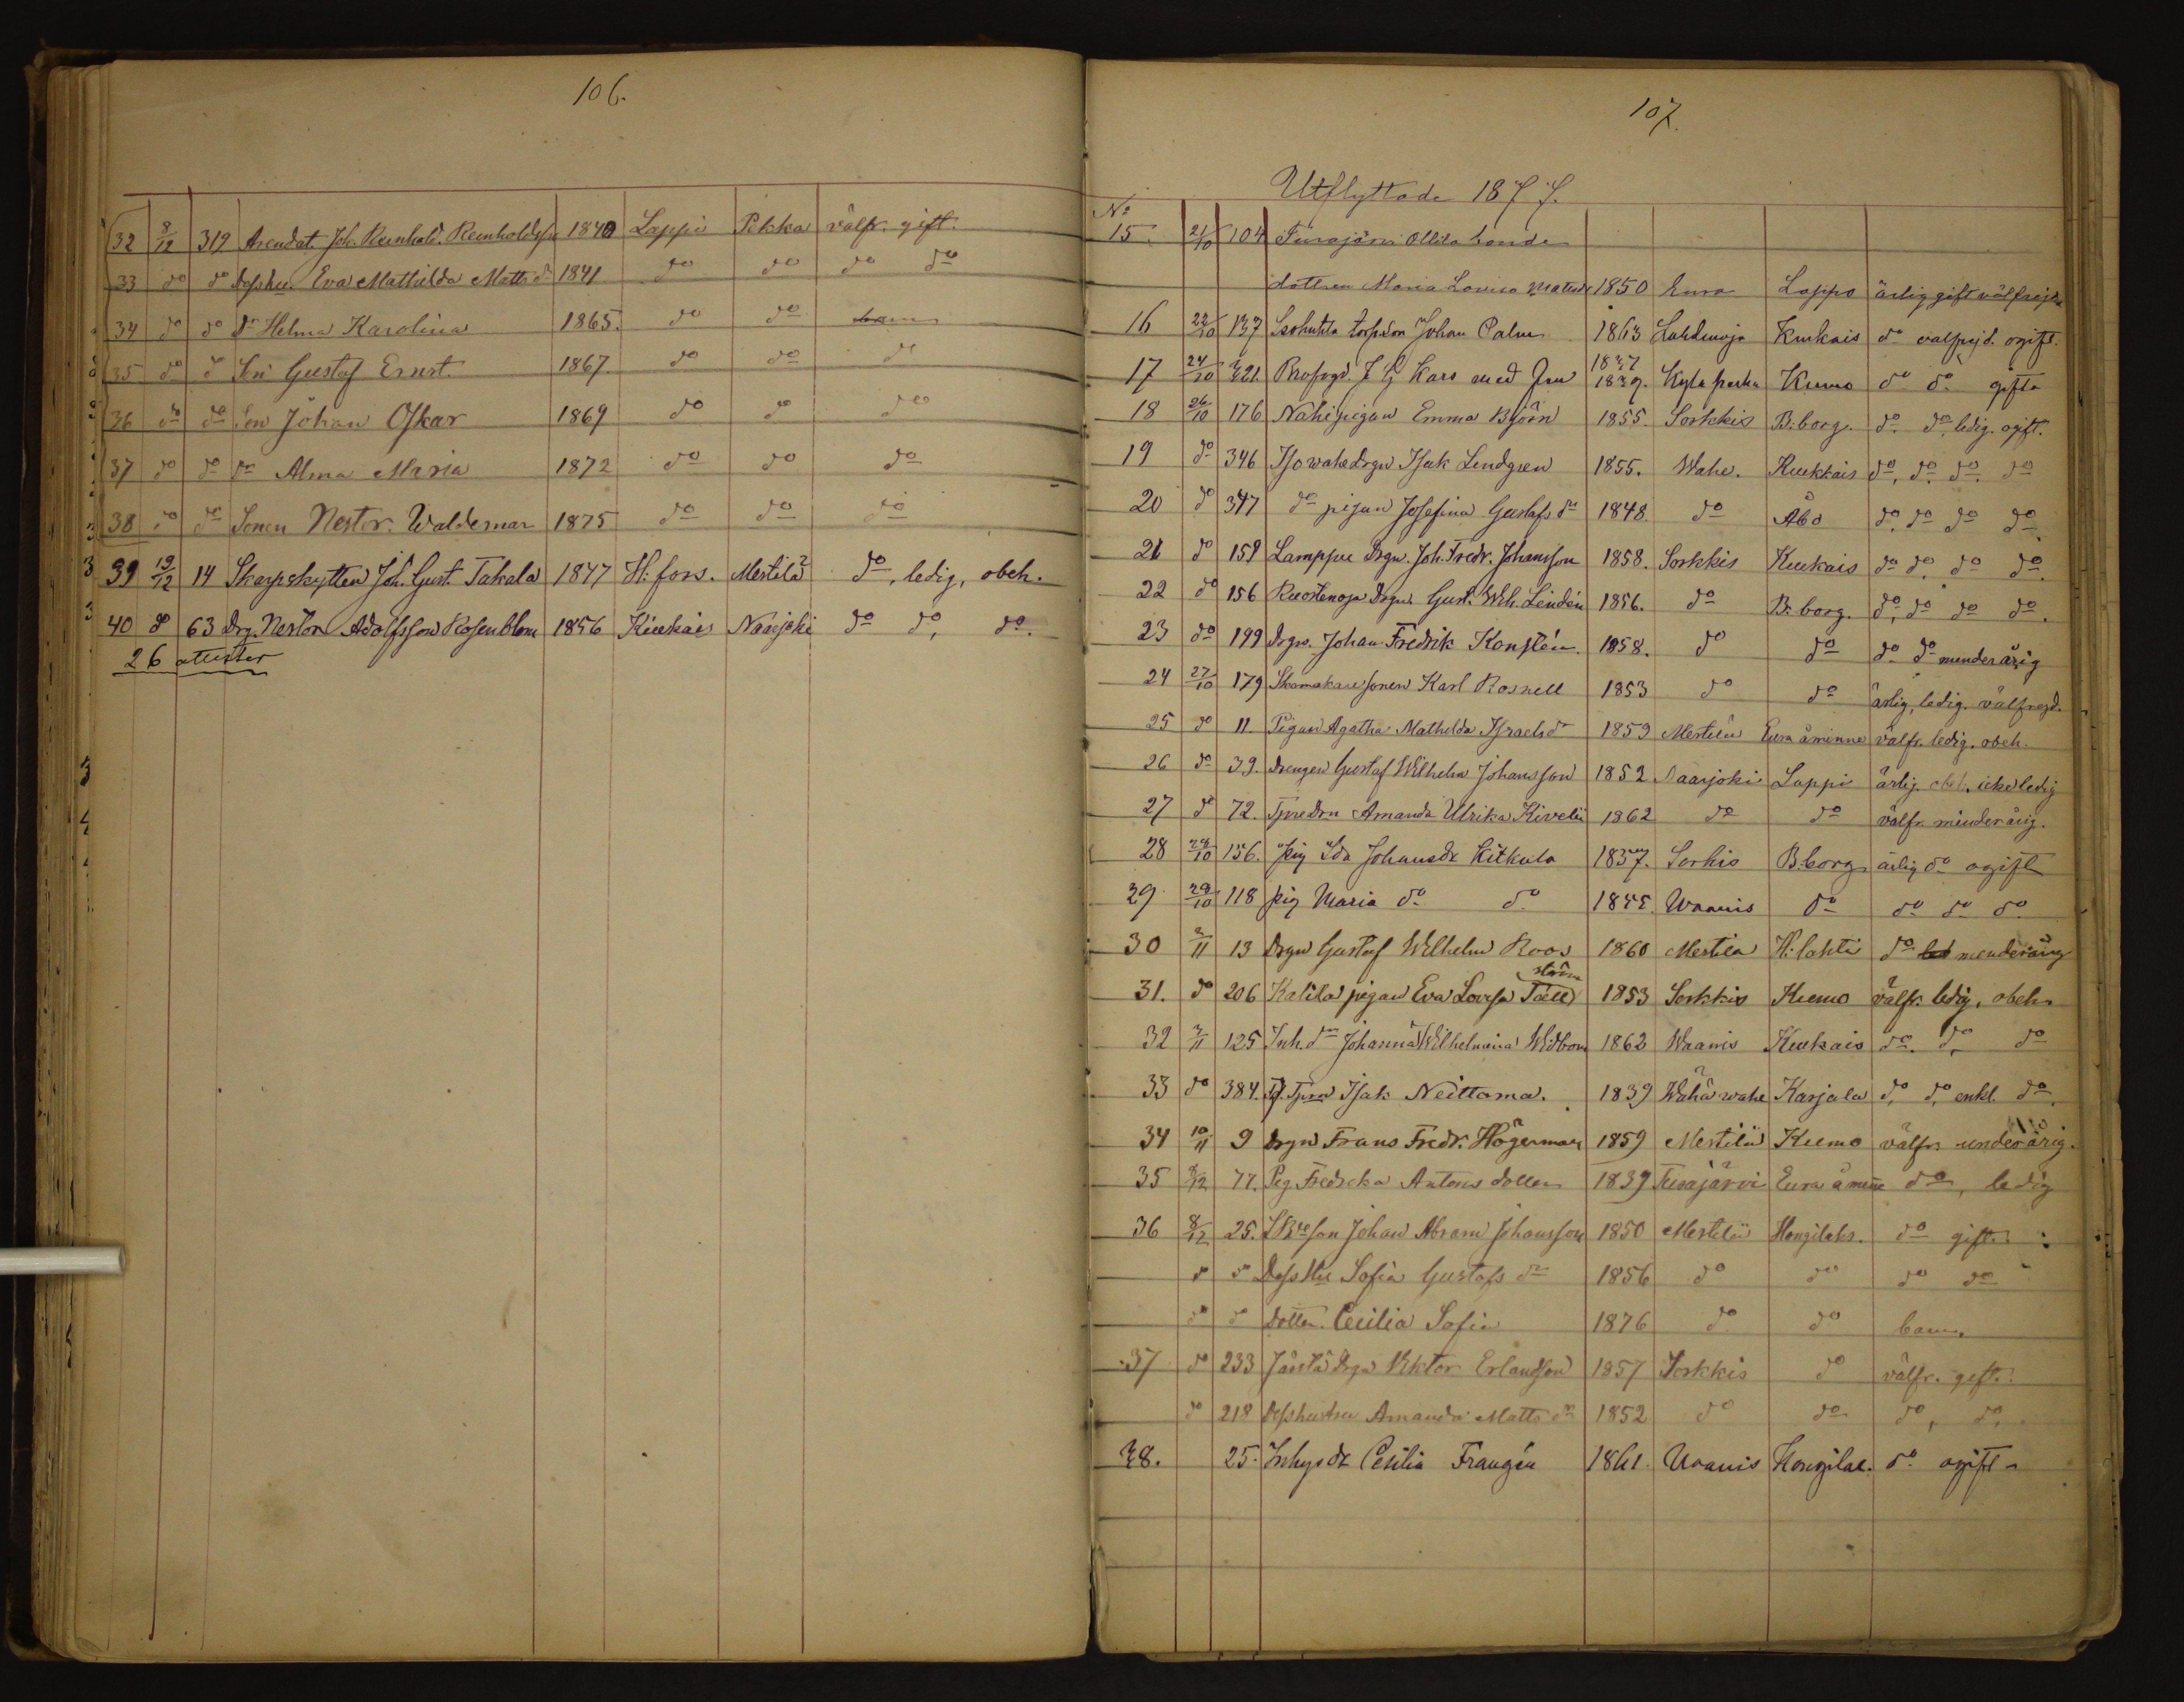 106.
32 8/12 319 Arendat. Joh. Reinhold. Reinholdsson 1840 Lappi Pekka välfr. gift.
33 do do Dess hu Eva Mathilda Matts dr 1841 do do do do
34 do do dr Helma Karolina 1865. do do barn
35 do do Son Gustaf Ernst 1867 do do do
36 do do Son Johan Oskar 1869 do do do
37 do do dr Alma Maria 1872 do do do
38 do do Sonen Nestor Waldemar 1875 do do do
39 19/12 14 Skarpskytten Joh. Gust. Takala 1847 H:fors. Mestilä do, ledig, obeh.
40 do 63 Drg. Nestor Adolfsson Rosenblom 1856 Kiukais Naarjoki do do, do.
26 attester
107.
Utflyttade 1877.
No
15. 21/10 104 Turajärvi Ollila bonde
dottren Maria Lovisa 1850 Eura Lappo ärlig gift välfrejd
16 22/10 137 Isohuhta torp. son Johan Palm 1863 Lahdenoja Kiukais do välfrejd. ogift.
17 24/10 321. J G Kars med Fru 1837 1839. Kyläpeka Kumo do do gifta
18 26/10 176 Nähi pigan Emma Björn 1855. Sorkkis B:borg. do. do. ledig. ogift.
19 do 346 Isowahe Drgn Isak Lindgren 1855. Wahe. Kiukkais do, do. do. do
20 do 347 do pigan Josefina Gustafs dr 1848. do Åbo do. do do do.
21 do 159 Lamppu Drgn. Joh. Fredr. Johansson 1858. Sorkkis Kiukais do do. do do.
22 do 156 Ruostenoja Drgn. Gust. Wilh. Lindén 1856. do B:borg. do, do do do.
23 do 199 Drgn. Johan Fredrik Konstén. 1858. do do do do minderårig
24 27/10 179 Skomakare sonen Karl Rosnell 1853 do do ärlig, ledig. välfrejd.
25 do 11. Pigan Agatha Mathilda Israels dr 1859 Mestilä Eura åminne välfr. ledig. obeh.
26 do 39. Drengen Gustaf Wilhelm Johansson 1852 Naarjoki Lappi ärlig. obeh. icke ledig
27 do 72. Tpre Drn Amanda Ulrika Kivelä 1862 do do välfr. minderårig.
28 28/10 156. pig Ida Johansdr Kitkula 1857. Sorkis B:borg ärlig do ogift
29 29/10 118 pig Maria do do 1845. Waanis do do do do
30 2/11 13 Drgn Gustaf Wilhelm Roos 1860 Mestilä H:lahti do minderårig
31. do 206 Kalila pigan Eva Lovisa Tällström 1853 Sorkkis Kumo välfr. ledig, obeh.
32 3/11 125 Inh. dr Johanna Wilhelmina Widbom 1862 Waanis Kiukais do. do, do
33 do 384. Isak Neittama. 1839 Vähä wahe Karjala do, do, enkl. do.
34 10/11 9 Drgn Frans Fredr. Högerman 1859 Mestilä Kumo välfr. underårig.
35 8/12 77. Pig. Fredrika Antons dotter 1839 Turajärvi Eura åminne do, ledig
36 8/12 25. son Johan Abram Johansson 1850 Mestilä Hongilaks. do gift.
do do Dess Hu Sofia Gustafs dr 1856 do do do do
do do Dotter. Cecilia Sofia 1876 do do barn.
37 do 233 Järstä Drgn Viktor Erlandson 1857 Sorkkis do välfr. gift.
do 218 Dess hustru Amanda Matts dr 1852 do do do, do.
38. 25. Inhys dr Cecilia Frangén 1861. Waanis Hongilax. do. ogift